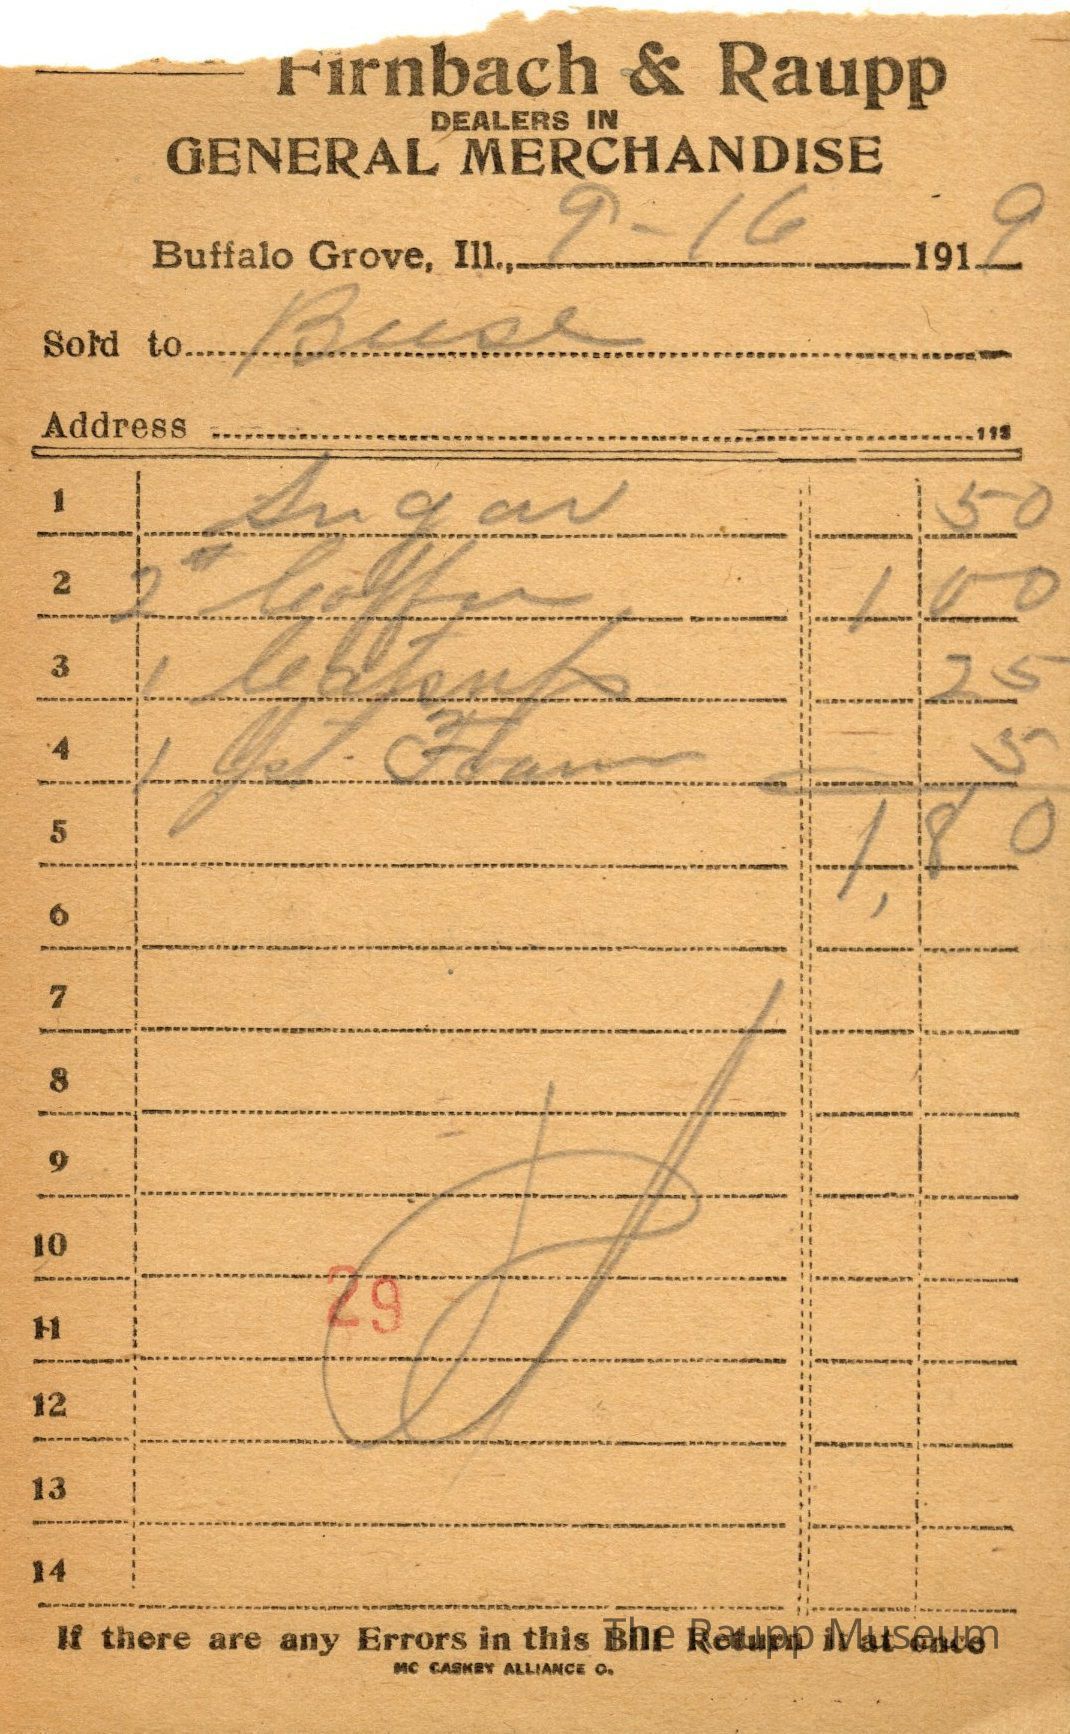 Firnbach & Raupp
DEALERS IN
GENERAL MERCHANDISE
Buffalo Grove, Ill., 9-16 1919
Sold to Buse
Address 113
1 Sugar 50
2 2# Coffee 1 00
3 1 Catsup 25
4 1 Yst. Foam 5
5 1,80
6
7
8
9
10
29
11
12
13
14
If there are any Errors in this Bill Return it at once
The Raupp Museum
MC CASKEY ALLIANCE O.